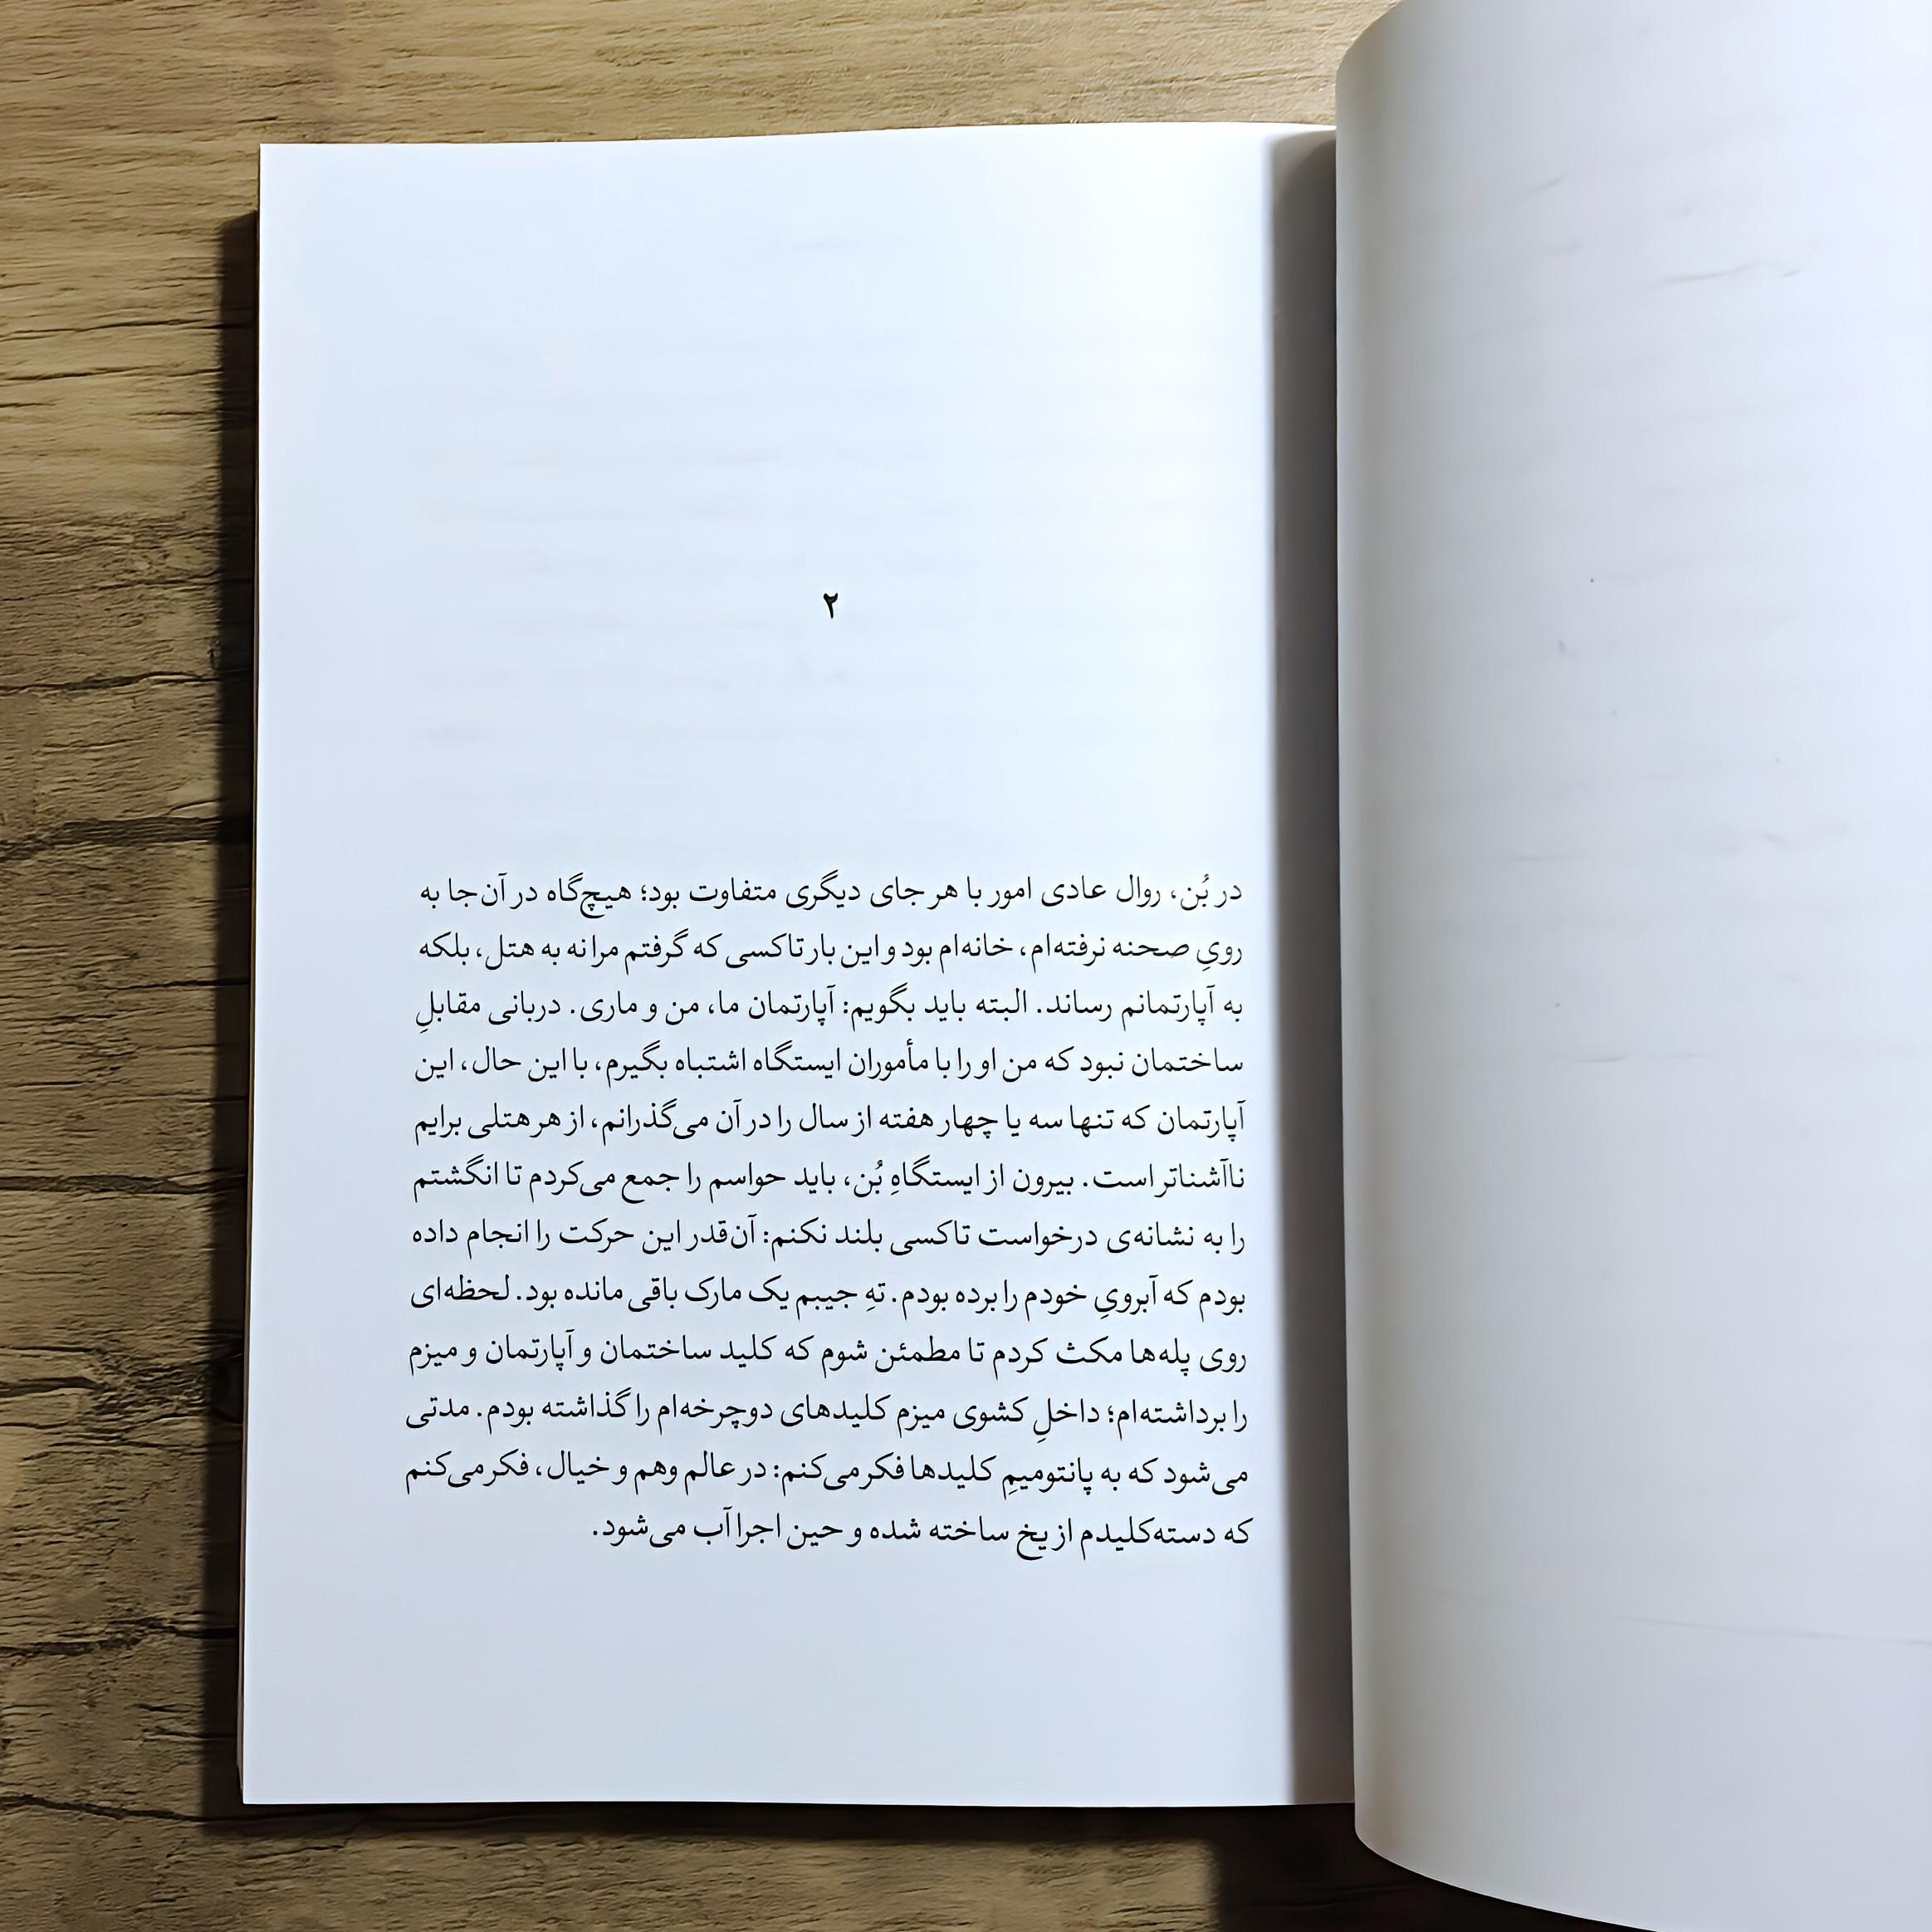 ۲
در بُن، روال عادی امور با هر جای دیگری متفاوت بود؛ هیچ‌گاه در آن‌جا به
رویِ صحنه نرفته‌ام، خانه‌ام بود و این بار تاکسی که گرفتم مرا نه به هتل، بلکه
به آپارتمانم رساند. البته باید بگویم: آپارتمان ما، من و ماری. دربانی مقابلِ
ساختمان نبود که من او را با مأموران ایستگاه اشتباه بگیرم، با این حال، این
آپارتمان که تنها سه یا چهار هفته از سال را در آن می‌گذرانم، از هر هتلی برایم
ناآشناتر است. بیرون از ایستگاهِ بُن، باید حواسم را جمع می‌کردم تا انگشتم
را به نشانه‌ی درخواست تاکسی بلند نکنم: آن‌قدر این حرکت را انجام داده
بودم که آبرویِ خودم را برده بودم. تهِ جیبم یک مارک باقی مانده بود. لحظه‌ای
روی پله‌ها مکث کردم تا مطمئن شوم که کلید ساختمان و آپارتمان و میزم
را برداشته‌ام؛ داخلِ کشوی میزم کلیدهای دوچرخه‌ام را گذاشته بودم. مدتی
می‌شود که به پانتومیمِ کلیدها فکر می‌کنم: در عالم وهم و خیال، فکر می‌کنم
که دسته‌کلیدم از یخ ساخته شده و حین اجرا آب می‌شود.